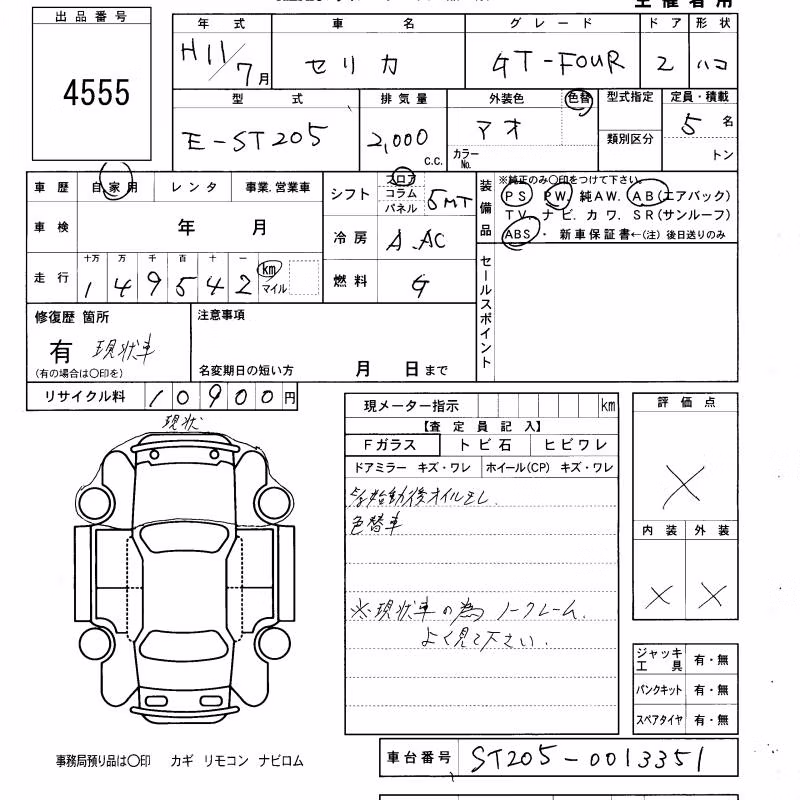 主催者用
出品番号
4555
年式 車名 グレード ドア 形状
H11/7月 セリカ GT-FOUR 2 ハコ
型式 排気量 外装色 色替 型式指定 定員・積載
E-ST205 2,000 c.c. アオ 5名
カラーNo. 類別区分 トン
車歴 自家用 レンタ 事業.営業車
車検 年 月
走行 十万 万 千 百 十 一 km マイル
149542
シフト フロア コラム パネル 5MT
冷房 A.AC
燃料 G
装備品 ※純正のみ〇印をつけて下さい。
PS PW. 純AW. AB(エアバック)
TV. ナビ. カワ. SR(サンルーフ)
ABS ・ 新車保証書←(注) 後日送りのみ
セールスポイント
修復歴 箇所 注意事項
有 現状車
(有の場合は〇印を) 名変期日の短い方 月 日まで
リサイクル料 10900円
現状
現メーター指示 km
【査定員記入】
Fガラス トビ石 ヒビワレ
ドアミラー キズ・ワレ ホイール(CP) キズ・ワレ
始動後オイルモレ.
色替車
※現状車の為 ノークレーム.
よく見て下さい.
評価点
×
内装 外装
× ×
ジャッキ工具 有・無
パンクキット 有・無
スペアタイヤ 有・無
事務局預り品は〇印 カギ リモコン ナビロム
車台番号 ST205-0013351